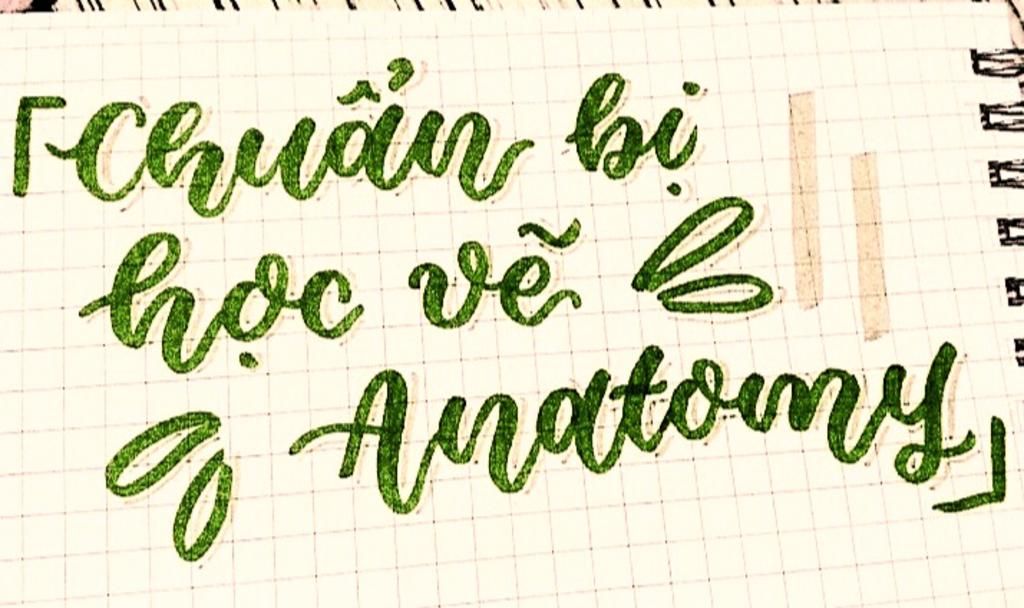 「Chuẩn bị
học vẽ
Anatomy」